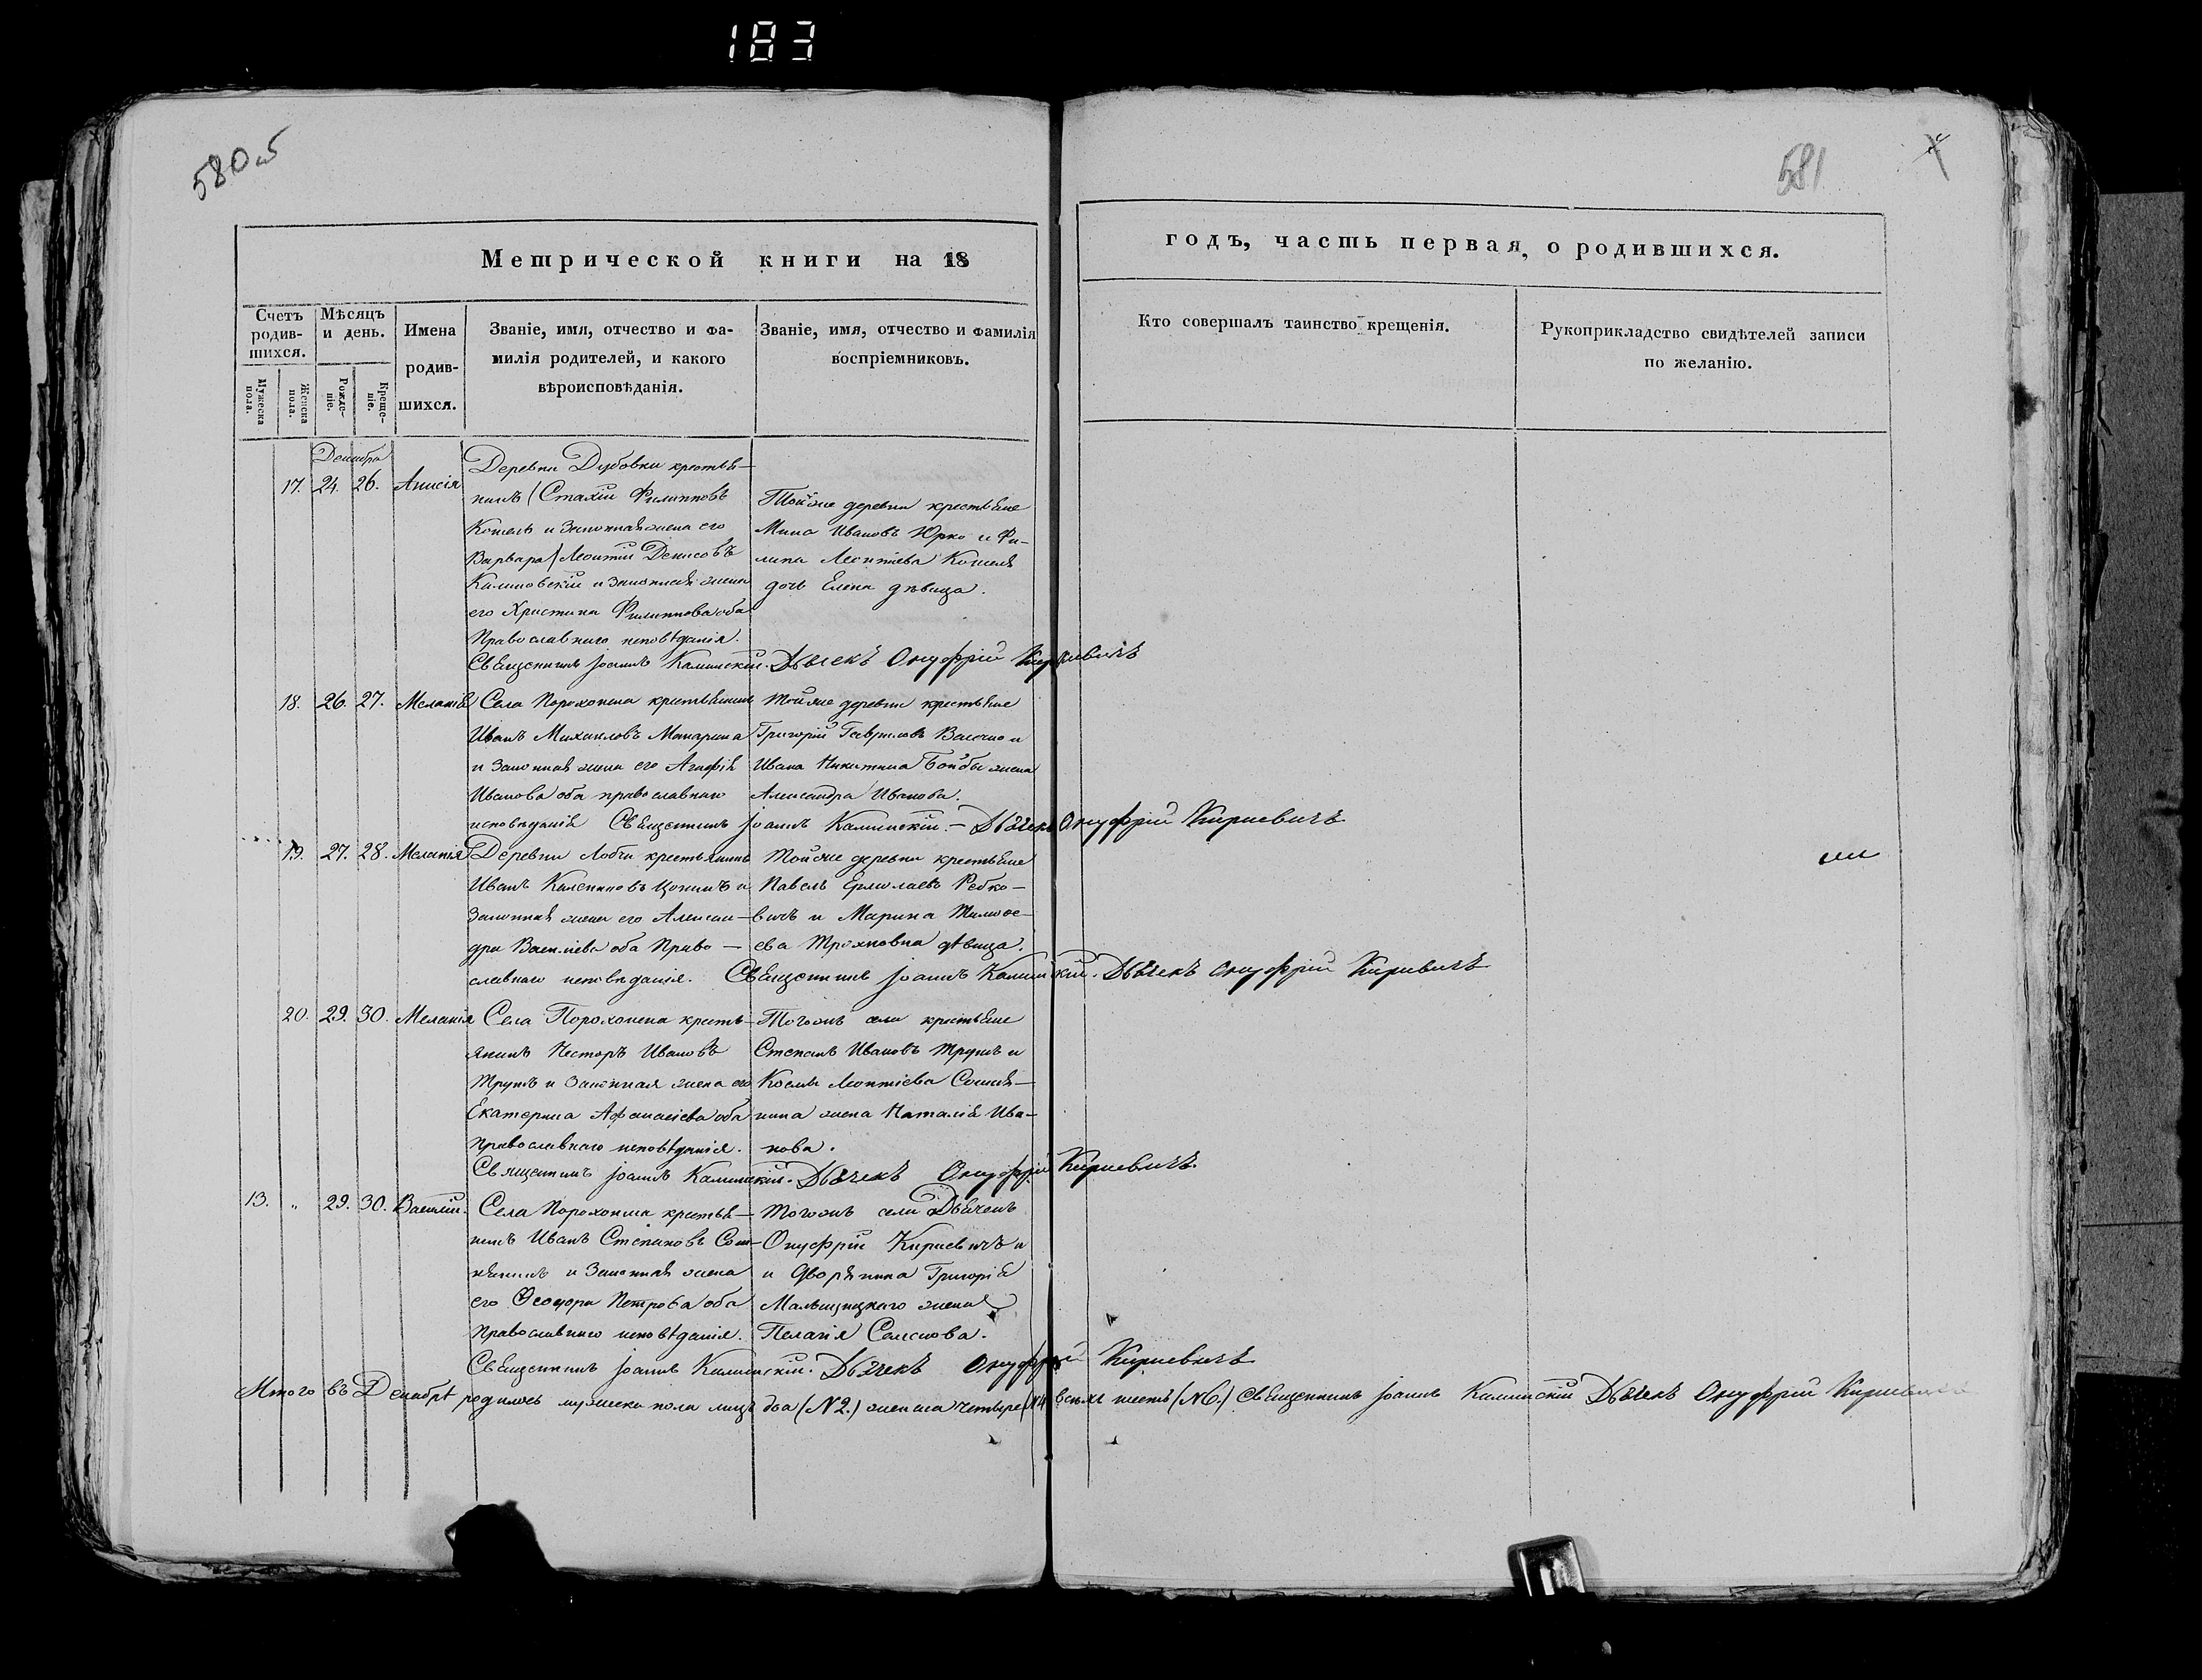 183
580 об
581
Метрической книги на 18
годъ, часть первая, о родившихся.
Счетъ родившихся.
Мужеска пола.
Женска пола.
Мѣсяцъ и день.
Рожденіе.
Крещеніе.
Имена родившихся.
Званіе, имя, отчество и фамилія родителей, и какого вѣроисповѣданія.
Званіе, имя, отчество и фамилія воспріемниковъ.
Кто совершалъ таинство крещенія.
Рукоприкладство свидѣтелей записи по желанію.
Декабра
17. 24. 26. Анисія
Деревни Дубовки крестья-
нинъ (Стахій Филипповъ
Кошель и Законная жена его
Варвара) Леонтій Денисовъ
Калиновскій и законная жена
его Христина Филиппова оба
Православнаго исповѣданія.
Тойже деревни крестьяне
Мина Ивановъ Юрко и Фи-
липа Леонтіева Кошеля
дочь Елена дѣвица.
Священникъ Іоаннъ Калинскій. Дьячекъ Онуфрій Киркевичъ
18. 26. 27. Меланія
Села Порохонска крестьянинъ
Иванъ Михаиловъ
и Законная жена его Агафія
Иванова оба православнаго
исповѣданія
Тойже деревни крестьяне
Григорій Гавриловъ и
Ивана Никитина жена
Александра Иванова.
Священникъ Іоаннъ Калинскій. — Дьячекъ Онуфрій Киркевичъ
19. 27. 28. Меланія
Деревни Лобчи крестьянинъ
Иванъ и
Законная жена его Алексан-
дра Василіева оба Право-
славнаго исповѣданія.
Тойже деревни крестьяне
Павелъ Ермолаевъ Ребко-
вичъ и Марина Тимоѳе-
ева дѣвица.
Священникъ Іоаннъ Калинскій. Дьячекъ Онуфрій Киркевичъ
20. 29. 30. Меланія
Села Порохонска кресть-
янинъ Несторъ Ивановъ
Трушъ и Законная жена его
Екатерина Афанасіева оба
Православнаго исповѣданія.
Тогожъ села крестьяне
Степанъ Ивановъ Трушъ и
Козьмы Леонтіева
жена Наталія Ива-
нова.
Священникъ Іоаннъ Калинскій. Дьячекъ Онуфрій Киркевичъ
13. „ 29. 30. Василій.
Села Порохонска крестья-
нинъ Иванъ Степановъ
и Законная жена
его Ѳеодора Петрова оба
Православнаго исповѣданія.
Тогожъ села Дьячекъ
Онуфрій Киркевичъ и
и Дворянина Григорія
Мальщицкаго жена
Пелагія Семенова.
Священникъ Іоаннъ Калинскій. Дьячекъ Онуфрій Киркевичъ
Итого въ Декабрѣ родилось мужеска пола лицъ два (N2.) женска четыре (N4 всѣхъ шесть (N6.) Священникъ Іоаннъ Калинскій Дьячекъ Онуфрій Киркевичъ